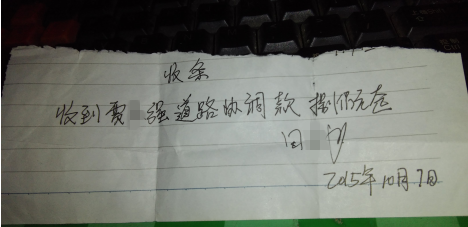 收条
收到贾强道路协调款 捌仟元
2015年10月7日